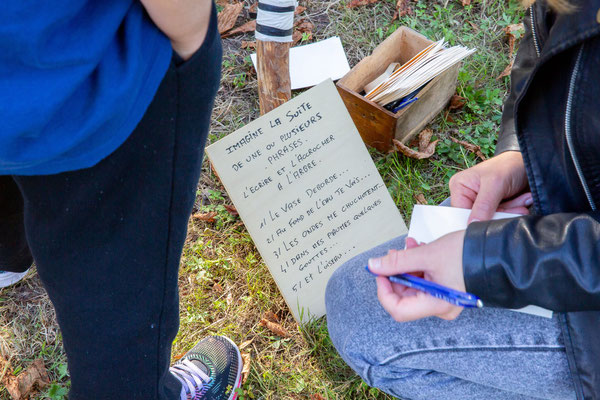 IMAGINE LA SUITE
DE UNE OU PLUSIEURS
PHRASES.
L'ÉCRIRE ET L'ACCROCHER
À L'ARBRE.
1/ LE VASE DÉBORDE...
2/ AU FOND DE L'EAU TE VOIS...
3/ LES ONDES ME CHUCHOTENT...
4/ DANS MES PAUMES QUELQUES
GOUTTES...
5/ ET L'OISEAU...